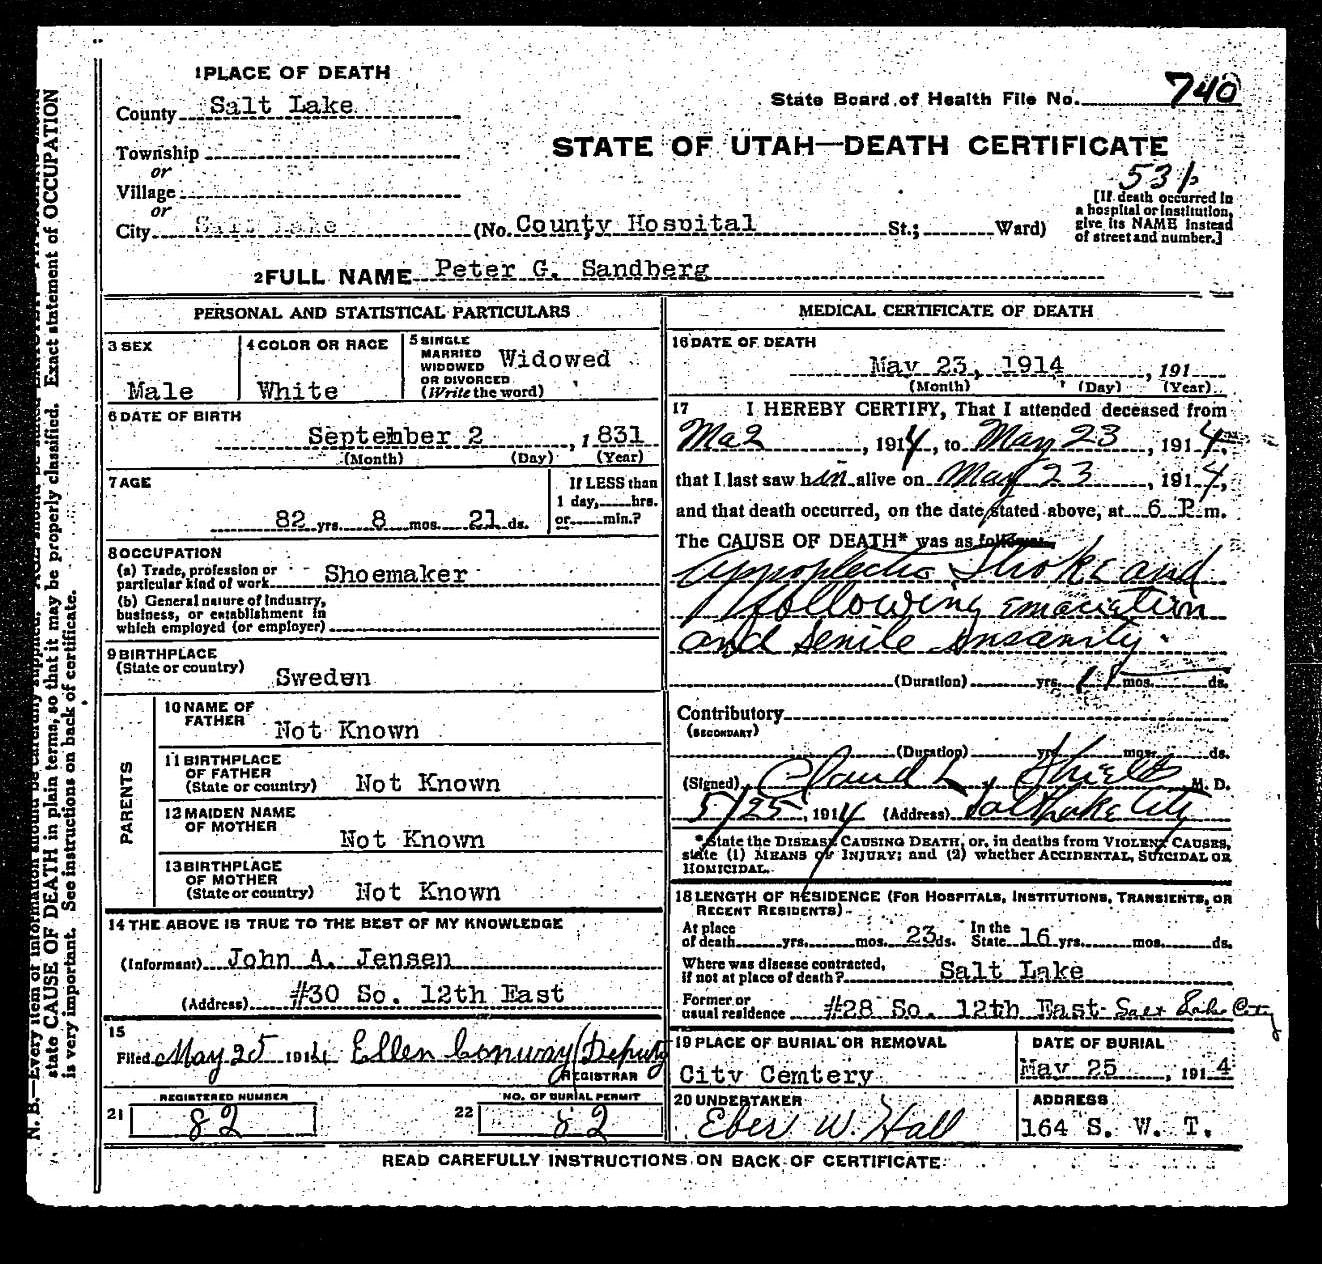 1 PLACE OF DEATH
County Salt Lake
State Board of Health File No. 740
Township
STATE OF UTAH—DEATH CERTIFICATE
or
Village
or
City Salt Lake (No. County Hospital St.; Ward)
[If death occurred in
a hospital or institution,
give its NAME instead
of street and number.]
2 FULL NAME Peter G. Sandberg
PERSONAL AND STATISTICAL PARTICULARS
3 SEX
Male
4 COLOR OR RACE
White
5 SINGLE
MARRIED
WIDOWED
OR DIVORCED
(Write the word)
Widowed
6 DATE OF BIRTH
September 2, 1831
(Month) (Day) (Year)
7 AGE
82 yrs. 8 mos. 21 ds.
If LESS than
1 day, hrs.
or min.?
8 OCCUPATION
(a) Trade, profession or
particular kind of work Shoemaker
(b) General nature of industry,
business, or establishment in
which employed (or employer)
9 BIRTHPLACE
(State or country)
Sweden
PARENTS
10 NAME OF
FATHER Not Known
11 BIRTHPLACE
OF FATHER
(State or country) Not Known
12 MAIDEN NAME
OF MOTHER Not Known
13 BIRTHPLACE
OF MOTHER
(State or country) Not Known
14 THE ABOVE IS TRUE TO THE BEST OF MY KNOWLEDGE
(Informant) John A. Jensen
(Address) #30 So. 12th East
15
Filed May 25 1914 Ellen Conway / Deputy
REGISTRAR
21 REGISTERED NUMBER
82
22 NO. OF BURIAL PERMIT
82
MEDICAL CERTIFICATE OF DEATH
16 DATE OF DEATH
May 23, 1914, 191
(Month) (Day) (Year)
17 I HEREBY CERTIFY, That I attended deceased from
Ma 2, 1914, to May 23, 1914,
that I last saw him alive on May 23, 1914,
and that death occurred, on the date stated above, at 6 P. m.
The CAUSE OF DEATH* was as follows:
Appoplectic Stroke and
following emaciation
and Senile insanity.
(Duration) yrs. mos. ds.
Contributory
(SECONDARY)
(Duration) yrs. mos. ds.
(Signed) Claud L. Shields M. D.
5/25, 1914 (Address) Salt Lake City
*State the DISEASE CAUSING DEATH, or, in deaths from VIOLENT CAUSES,
state (1) MEANS OF INJURY; and (2) whether ACCIDENTAL, SUICIDAL OR
HOMICIDAL.
18 LENGTH OF RESIDENCE (FOR HOSPITALS, INSTITUTIONS, TRANSIENTS, OR
RECENT RESIDENTS)
At place
of death yrs. mos. 23 ds. In the
State 16 yrs. mos. ds.
Where was disease contracted,
if not at place of death? Salt Lake
Former or
usual residence #28 So. 12th East Salt Lake City
19 PLACE OF BURIAL OR REMOVAL
City Cemtery
DATE OF BURIAL
May 25, 1914
20 UNDERTAKER
Eber W. Hall
ADDRESS
164 S. W. T.
READ CAREFULLY INSTRUCTIONS ON BACK OF CERTIFICATE
N. B.—Every item of information should be carefully supplied.
state CAUSE OF DEATH in plain terms, so that it may be properly classified. Exact statement of OCCUPATION
is very important. See instructions on back of certificate.